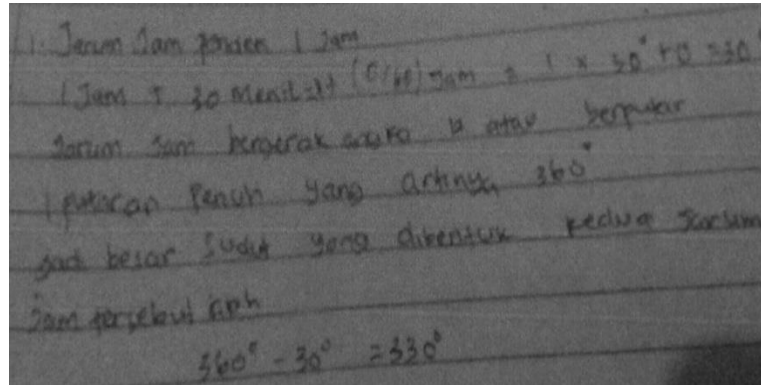 1. Jarum Jam pendek 1 Jam
1 Jam + 30 Menit = 1+ (0/60) Jam = 1 x 30° + 0 = 30°
Jarum Jam bergerak angka 12 atau berputar
1 putaran Penuh yang artinya 360°
Jadi besar Sudut yang dibentuk kedua Jarum
Jam tersebut
360° - 30° = 330°